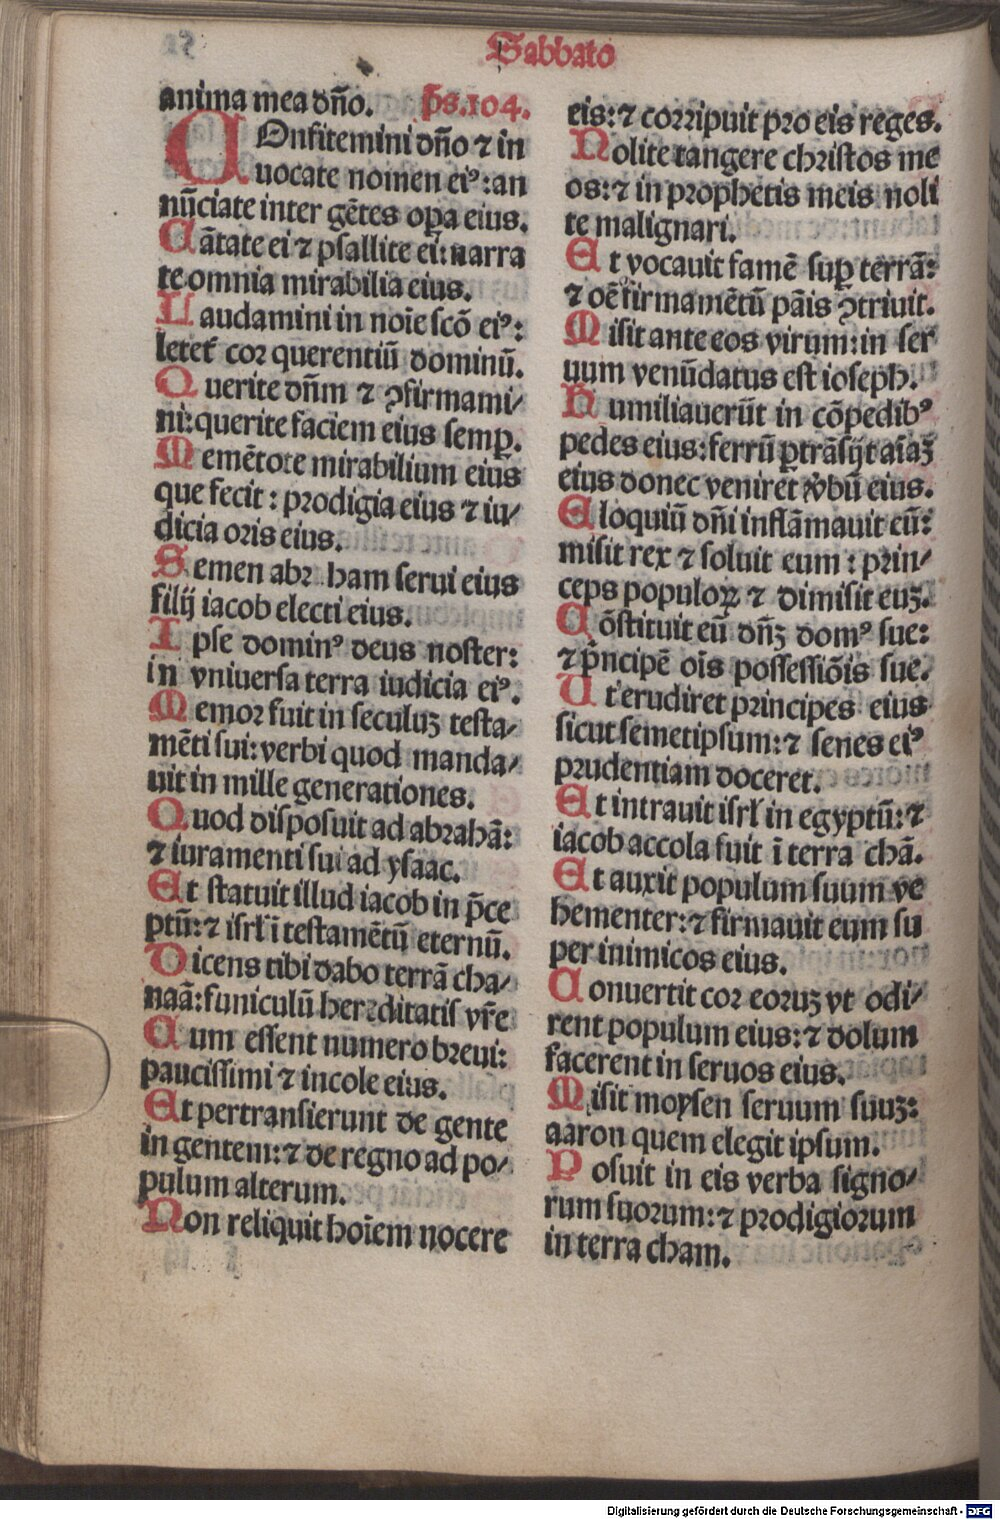 Sabbato
anima mea dño. ps.104.
COnfitemini dño ⁊ in
uocate nomen eiꝰ: an
nũciate inter gẽtes oꝑa eius.
Cãtate ei ⁊ psallite ei: narra
te omnia mirabilia eius.
Laudamini in noĩe scõ eiꝰ:
letet᷑ cor querentiũ dominũ.
Querite dñm ⁊ ꝯfirmami/
ni: querite faciem eius semꝑ.
Memẽtote mirabilium eius
que fecit: prodigia eius ⁊ iu/
dicia oris eius.
Semen abraham serui eius
filij iacob electi eius.
Ipse dominꝰ deus noster:
in vniuersa terra iudicia eiꝰ.
Memor fuit in seculuꝫ testa/
mẽti sui: verbi quod manda/
uit in mille generationes.
Quod disposuit ad abrahã:
⁊ iuramenti sui ad ysaac.
Et statuit illud iacob in p̃ce
ptũ: ⁊ isrl̃ ĩ testamẽtũ eternũ.
Dicens tibi dabo terrã cha/
naã: funiculũ hereditatis vr̃e
Cum essent numero breui:
paucissimi ⁊ incole eius.
Et pertransierunt de gente
in gentem: ⁊ de regno ad po/
pulum alterum.
Non reliquit hoĩem nocere
eis: ⁊ corripuit pro eis reges.
Nolite tangere christos me
os: ⁊ in prophetis meis noli
te malignari.
Et vocauit famẽ suꝑ terrã:
⁊ oẽ firmamẽtũ pãis ꝯtriuit.
Misit ante eos virum: in ser
uum venũdatus est ioseph.
Humiliauerũt in cõpedibꝰ
pedes eius: ferrũ ꝑtrãsijt aĩaꝫ
eius donec veniret ṽbũ eius.
Eloquiũ dñi inflãmauit eũ:
misit rex ⁊ soluit eum: prin/
ceps populoꝝ ⁊ dimisit euꝫ.
Cõstituit eũ dñꝫ domꝰ sue:
⁊ p̃ncipẽ oĩs possessiõis sue.
Ut erudiret principes eius
sicut semetipsum: ⁊ senes eiꝰ
prudentiam doceret.
Et intrauit isrl̃ in egyptũ: ⁊
iacob accola fuit ĩ terra chã.
Et auxit populum suum ve
hementer: ⁊ firmauit eum su
per inimicos eius.
Conuertit cor eoruꝫ vt odi/
rent populum eius: ⁊ dolum
facerent in seruos eius.
Misit moysen seruum suuꝫ:
aaron quem elegit ipsum.
Posuit in eis verba signo/
rum suorum: ⁊ prodigiorum
in terra cham.
Digitalisierung gefördert durch die Deutsche Forschungsgemeinschaft - DFG